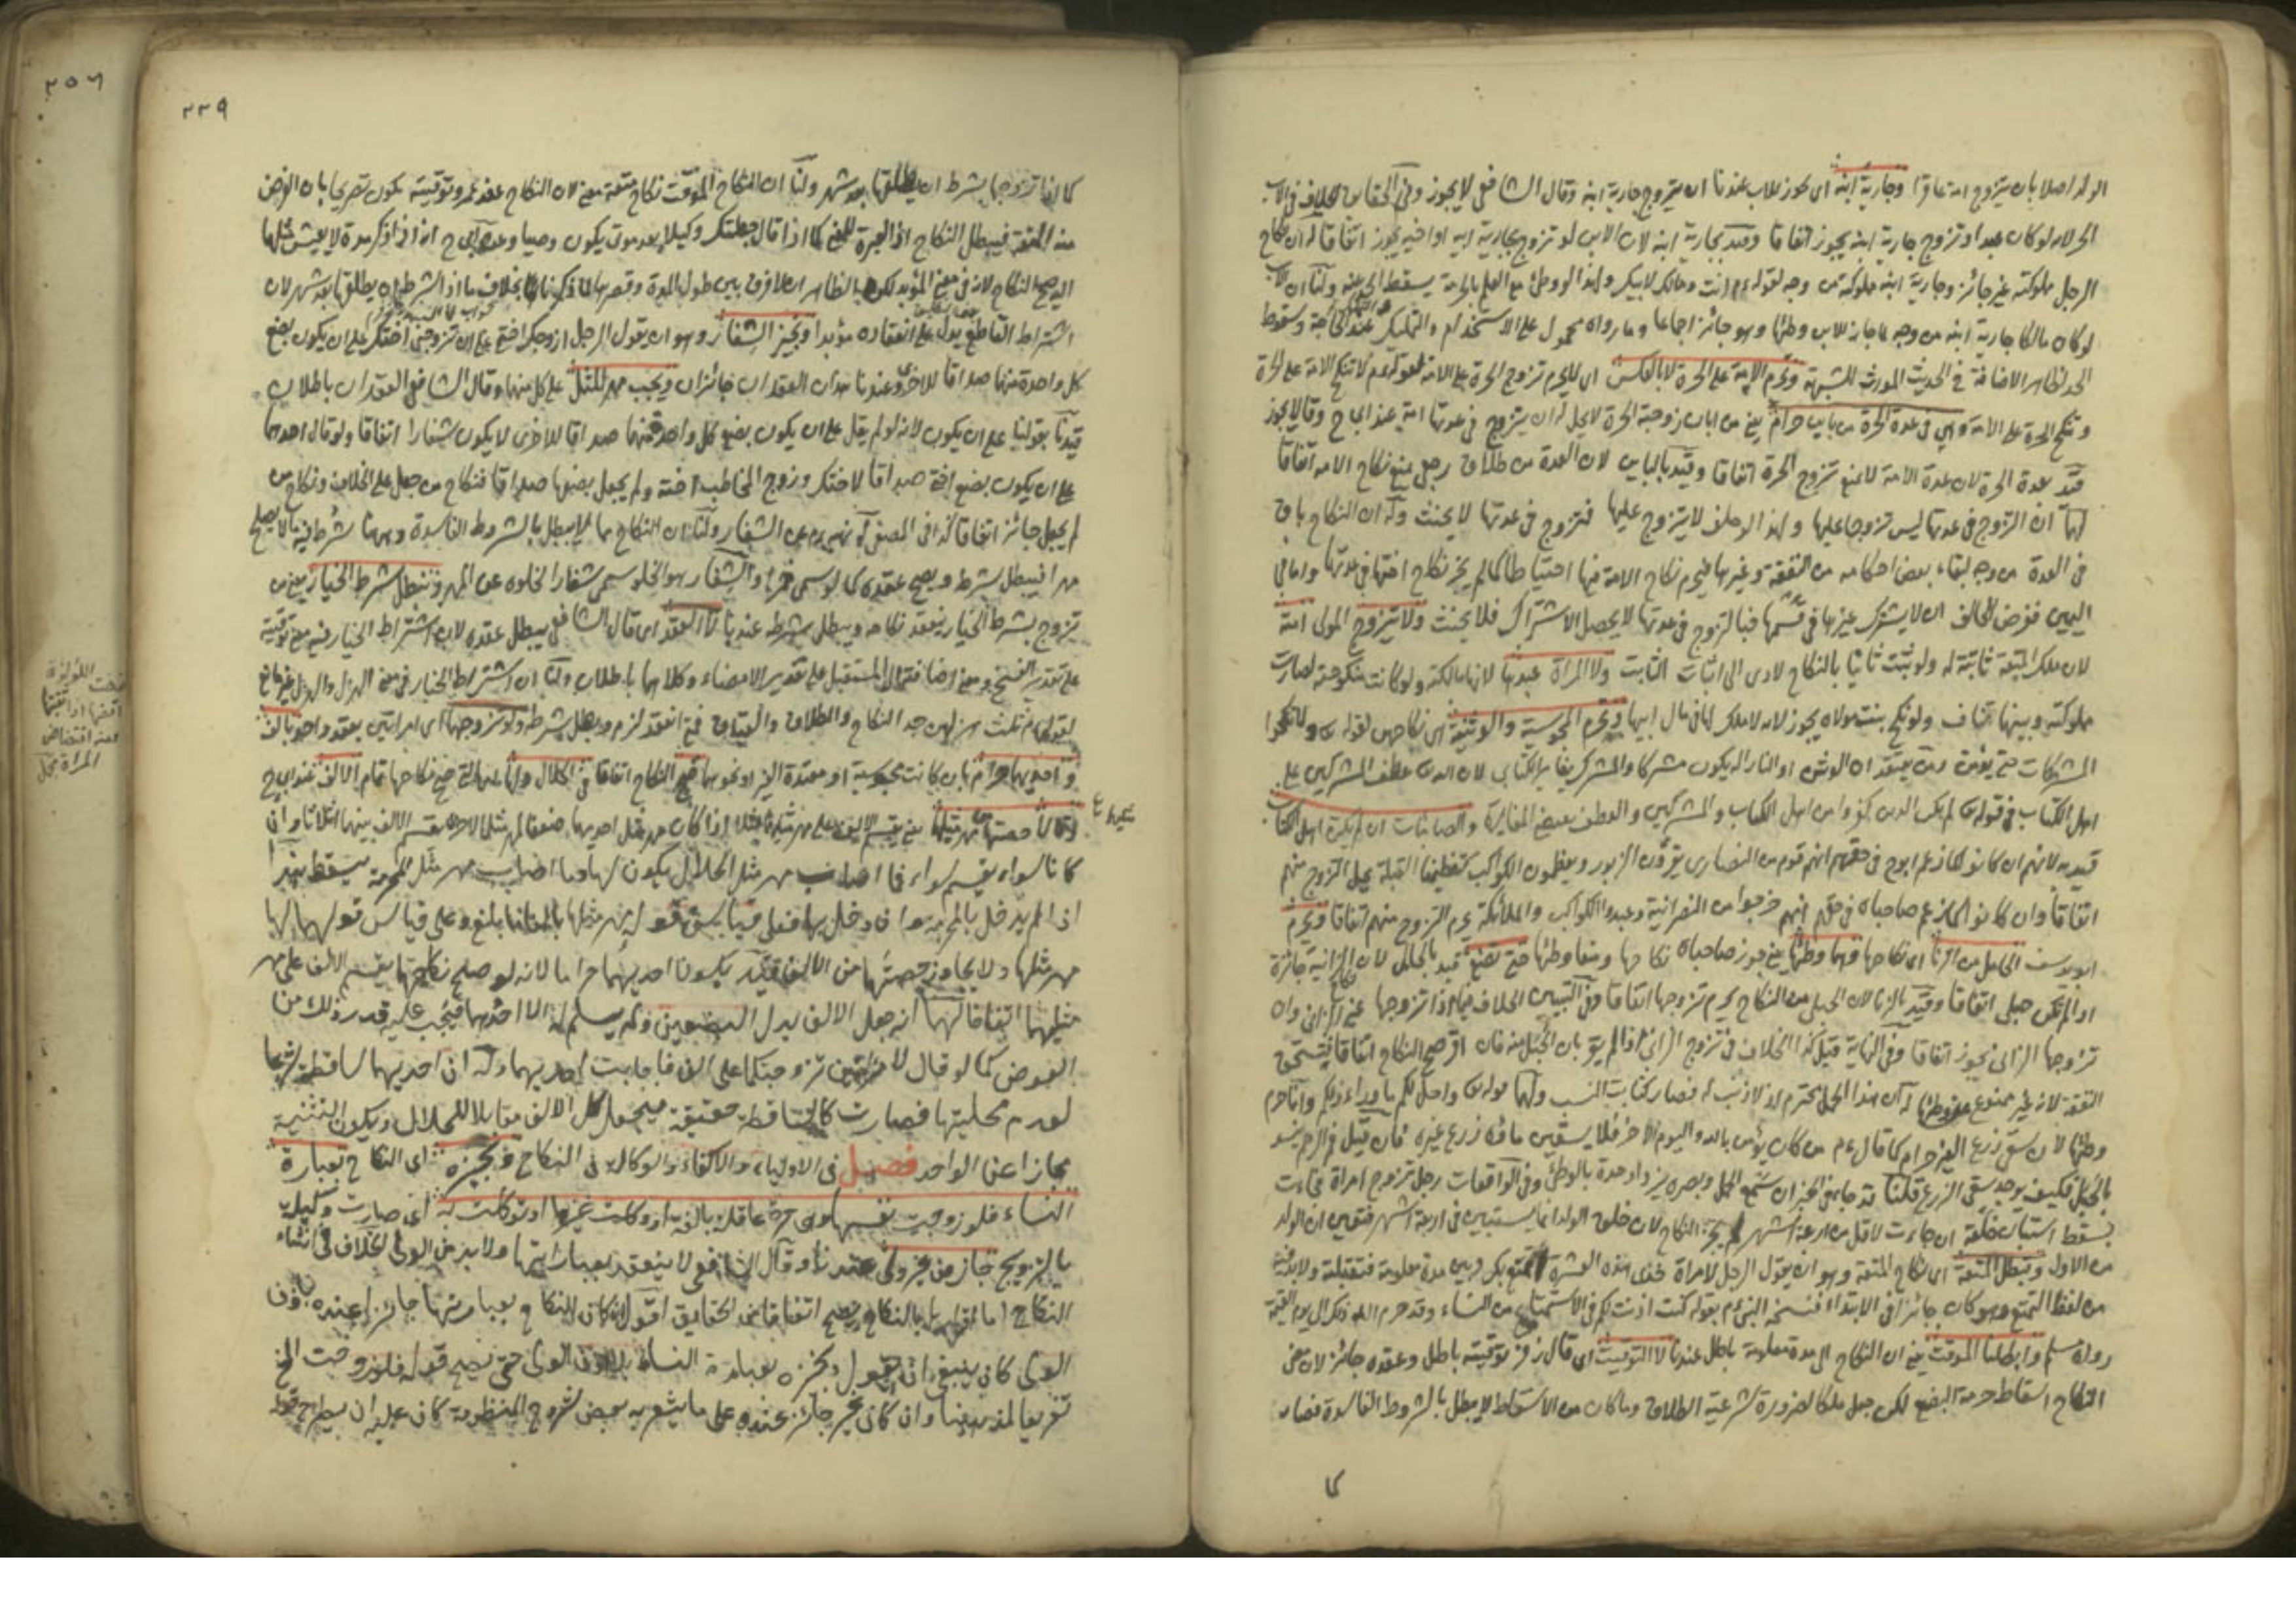 الولد اصلا بان يتزوج امة عاقرا وجارية ابنه اى يجوز للاب عندنا ان يتزوج جارية ابنه وقال الشافعى لا يجوز وفى الحقايق الخلاف فى الاب
الحر لانه لو كان عبدا وتزوج جارية ابنه يجوز اتفاقا وقيد بجارية ابنه لان الابن لو تزوج بجارية ابيه او اخيه يجوز اتفاقا له ان نكاح
الرجل مملوكته غير جائز وجارية ابنه مملوكته من وجه لقوله عم انت ومالك لابيك ولهذا لو وطئ مع العلم بالحرمة يسقط الحد عنه ولنا ان الاب
لو كان مالكا جارية ابنه من وجه لما جاز للابن وطئها وهو جائز اجماعا وما رواه محمول على الاستخدام والتمليك عند الحاجة وسقوط
الحد لظاهر الاضافة فى الحديث المورث للشبهة وتحرم الامة على الحرة لا بالعكس اى لا يحرم تزوج الحرة على الامة لقوله عم لا تنكح الامة على الحرة
وتنكح الحرة على الامة وهى فى عدة الحرة من باين حرام يعنى من ابان زوجته الحرة لا يحل له ان يتزوج فى عدتها امة عند ابى ح وقالا يجوز
قيد بعدة الحرة لان عدة الامة لا تمنع تزوج الحرة اتفاقا وقيد بالباين لان العدة من طلاق رجعى تمنع نكاح الامة اتفاقا
لهما ان التزوج فى عدتها ليس تزوجا عليها ولهذا لو حلف لا يتزوج عليها فتزوج فى عدتها لا يحنث وله ان النكاح باق
فى العدة من وجه لبقاء بعض احكامه من النفقة وغيرها فيحرم نكاح الامة فيها احتياطا كما لم يجز نكاح اختها فى عدتها واما فى
اليمين فغرض الحالف ان لا يشترك غيرها فى قسمها فبالتزوج فى عدتها لا يحصل الاشتراك فلا يحنث ولا يتزوج المولى امته
لان ملك المتعة ثابتة له ولو ثبت ثانيا بالنكاح لادى الى اثبات الثابت ولا المراة عبدها لانها مالكته ولو كانت منكوحته لصارت
مملوكته وبينهما تناف ولو نكح بنت مولاه يجوز لانه لا ملك لها فى مال ابيها وتحرم المجوسية والوثنية اى نكاحهن لقوله تعالى ولا تنكحوا
المشركات حتى يؤمن ومن يعتقد ان الوثن او النار اله يكون مشركا والمشرك يغاير الكتابى لان الله تعالى عطف المشركين على
اهل الكتاب فى قوله تعالى لم يكن الذين كفروا من اهل الكتاب والمشركين والعطف يقتضى المغايرة والصابئات ان لم يكن اهل الكتاب
قيد به لانهم ان كانوا كما زعم ابو ح فى حقهم انهم قوم من النصارى يقرؤن الزبور ويعظمون الكواكب كتعظيمنا القبلة يحل التزوج منهم
اتفاقا وان كانوا كما زعم صاحباه فى حقهم انهم خرجوا من النصرانية وعبدوا الكواكب والملائكة يحرم التزوج منهم اتفاقا ويحرم
ابو يوسف الحامل من الزنا اى نكاحها وهما وطئها يعنى جوز صاحباه نكاحها ومنعا وطئها حتى تضع قيد بالحامل لان الزانية جائزة
او لم تكن حبلى اتفاقا وقيد بالزنا لان الحبلى من النكاح يحرم تزوجها اتفاقا وفى التبيين الخلاف فيما اذا تزوجها غير الزانى وان
تزوجها الزانى يجوز اتفاقا وفى النهاية قيل هذا الخلاف فى تزوج الزانى اذا لم يقر بان الحبل منه فان اقر صح النكاح اتفاقا فيستحق
النفقة لانه غير ممنوع من وطئها له ان هذا الحمل محترم لانه لا ذنب له فصار كثابت النسب ولهما قوله تعالى واحل لكم ما وراء ذلكم وانما حرم
وطئها لان سقى زرع الغير حرام كما قال عم من كان يؤمن بالله واليوم الآخر فلا يسقين ماءه زرع غيره فان قيل فم الرحم ينسد
بالحبل فكيف يوجد سقى الزرع قلنا قد جاء فى الخبر ان سمع الحمل وبصره يزداد حدة بالوطئ وفى الواقعات رجل تزوج امراة فجاءت
بسقط استبان خلقه ان جاءت لاقل من اربعة اشهر لم يجز النكاح لان خلق الولد انما يستبين فى اربعة اشهر فتعين ان الولد
من الاول وتبطل المتعة اى نكاح المتعة وهو ان يقول الرجل لامراة خذى هذه العشرة لاتمتع بك وبين مدة معلومة فتقبلته ولا بد فيه
من لفظ التمتع وهو كان جائزا فى الابتداء فنسخه النبى عم بقوله كنت اذنت لكم فى الاستمتاع من النساء وقد حرم الله ذلك الى يوم القيمة
رواه مسلم وابطلنا الموقت يعنى ان النكاح الى مدة معلومة باطل عندنا لا التوقيت اى قال زفر توقيته باطل وعقده جائز لان معنى
النكاح اسقاط حرمة البضع لكن جعل ملكا لضرورة شرعية الطلاق وما كان من الاسقاط لا يبطل بالشروط الفاسدة فصار
كا
٢٣٩
كما اذا تزوجها بشرط ان يطلقها بعد شهر ولنا ان النكاح الموقت نكاح متعة معنى لان النكاح عقد عمر وتوقيته يكون تصريحا بان الغرض
منه المتعة فيبطل النكاح اذ العبرة للمعنى كما اذا قال جعلتك وكيلا بعد موتى يكون وصيا وعن ابى ح انه اذا ذكر مدة لا يعيش مثلها
اليه صح النكاح لانه فى معنى المؤبد لكن الظاهر ان لا فرق بين طول المدة وقصرها لما ذكرنا بخلاف ما اذا شرط ان يطلقها بعد شهر لان
اشتراط القاطع يدل على انعقاده مؤبدا ونجيز الشغار وهو ان يقول الرجل ازوجك اختى على ان تزوجنى اختك على ان يكون بضع
كل واحدة منهما صداقا للاخرى وعندنا هذان العقدان جائزان ويجب مهر المثل على كل منهما وقال الشافعى العقدان باطلان
قيدنا بقولنا على ان يكون لانه لو لم يقل على ان يكون بضع كل واحدة منهما صداقا للاخرى لا يكون شغارا اتفاقا ولو قال احدهما
على ان يكون بضع اختى صداقا لاختك وزوج المخاطب اخته ولم يجعل بضعها صداقا فنكاح من جعل على الخلاف ونكاح من
لم يجعل جائز اتفاقا كذا فى المصفى له نهيه عم عن الشغار ولنا ان النكاح مما لا يبطل بالشروط الفاسدة وههنا شرط فيه ما لا يصلح
مهرا فيبطل شرطه ويصح عقده كما لو سمى خمرا والشغار هو الخلو سمى شغارا لخلوه عن المهر ونبطل شرط الخيار يعنى من
تزوج بشرط الخيار ينعقد نكاحه ويبطل شرطه عندنا لا العقد اى قال الشافعى يبطل عقده لان اشتراط الخيار فيه معنى توقيته
على تقدير الفسخ ومعنى اضافته الى المستقبل على تقدير الامضاء وكلاهما باطلان ولنا ان اشتراط الخيار فى معنى الهزل والهزل غير مانع
لقوله عم ثلث هزلهن جد النكاح والطلاق والعتاق فمتى انعقد لزم وبطل شرطه ولو تزوجهما اى امراتين بعقد واحد بالف
واحديهما حرام بان كانت مجوسية او معتدة الغير او نحوهما صح النكاح اتفاقا فى الحلال ولها اى للتى صح نكاحها تمام الالف عند ابى ح
وقالا حصتها من مهر مثلها يعنى يقسم الالف على مهر مثليهما مثلا اذا كان مهر مثل احديهما ضعفا لمهر مثل الاخرى يقسم الالف بينهما اثلاثا وان
كانا سواء يقسم سواء فما اصاب مهر مثل الحلال يكون لها وما اصاب مهر مثل المحرمة يسقط بهذا
اذا لم يدخل بالمحرمة وان دخل بها فعلى قياس قوله مهر مثلها بالغا ما بلغ وعلى قياس قولهما لها
مهر مثلها ولا يجاوز حصتها من الالف قيد بكون احديهما حراما لانه لو صلح نكاحهما يقسم الالف على مهر
مثليهما اتفاقا لهما انه جعل الالف بدل البضعين ولم يسلم له الا احدهما فيجب عليه قدر ذلك من
العوض كما لو قال لامراتين تزوجتكما على الف فاجابت احديهما وله ان احديهما ساقطة شرعا
لعدم محليتها فصارت كالساقطة حقيقة فيجعل كل الالف مقابلا للحلال ويكون التثنية
مجازا عن الواحد فصل فى الاولياء والاكفاء والوكالة فى النكاح ونجيزه اى النكاح بعبارة
النساء فلو زوجت نفسها وهى حرة عاقلة بالغة او وكلت غيرها او توكلت به اى صارت وكيلة
بالتزويج جاز من غير ولى عندنا وقال الشافعى لا ينعقد بعبارتها ولا بد من الولى الخلاف فى انشاء
النكاح اما اقرارها بالنكاح يصح اتفاقا من الحقايق اقول لو كان النكاح بعبارتها جائزا عنده باذن
الولى كان ينبغى ان يقول ونجيزه بعبارة النساء بلا اذن الولى حتى يصح قوله فلو زوجت الخ
تفريعا لمذهبنا وان كان غير جائز عنده على ما يشعر به بعض شروح المنظومة كان عليه ان يطرح قوله